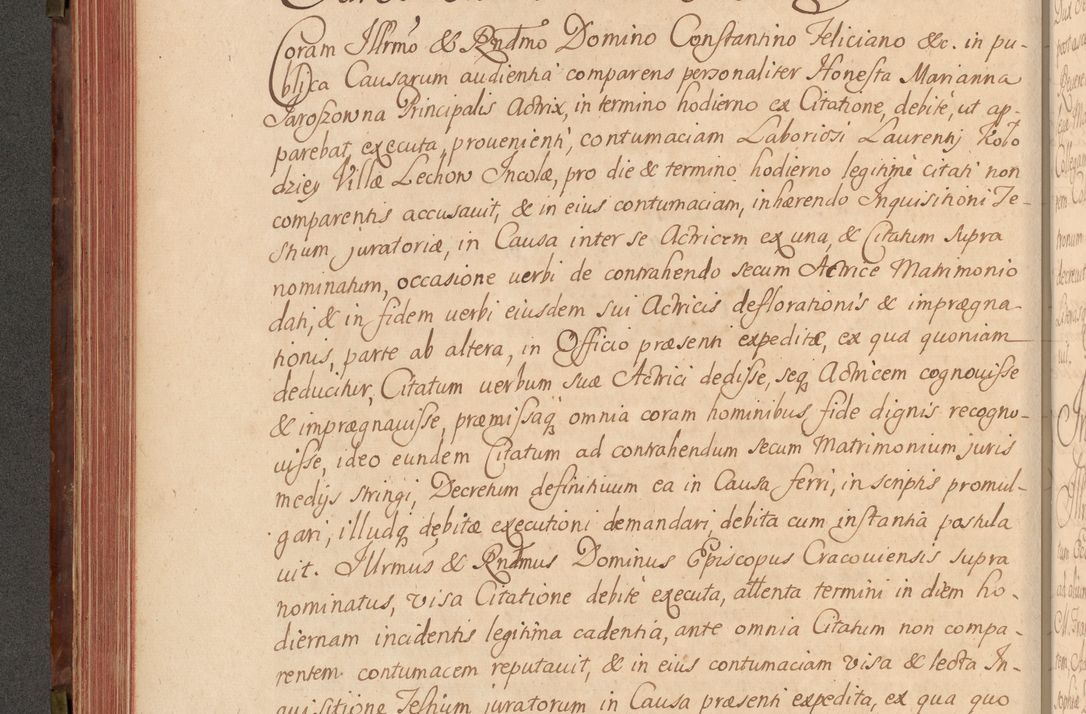 Coram Illrmo & Rndmo Domino Constantino Feliciano &c. in pu-
blica Causarum audientia comparens personaliter Honesta Marianna
Jaroszowna Principalis Actrix, in termino hodierno ex Citatione, debite, ut ap-
parebat, executa, provenienti, contumaciam Laboriosi Laurentij Koło
dziey Villæ Lechow Incolæ, pro die & termino hodierno legitime citati non
comparentis accusavit, & in eius contumaciam, inhærendo Inquisitioni Te-
stium juratoriæ, in Causa inter se Actricem ex una, & Citatum supra
nominatum, occasione verbi de contrahendo secum Actrice Matrimonio
dati, & in fidem verbi eiusdem sui Actricis deflorationis & imprægna-
tionis, parte ab altera, in Officio præsenti expeditæ, ex qua quoniam
deducitur, Citatum verbum suæ Actrici dedisse, seq Actricem cognovisse
& imprægnavisse, præmissaq omnia coram hominibus fide dignis recogno-
visse, ideo eundem Citatum ad contrahendum secum Matrimonium juris
medijs stringi, Decretum definitivum ea in Causa ferri, in scriptis promul-
gari, illudq debitæ executioni demandari, debita cum instantia postula
vit. Illrmus & Rndmus Dominus Episcopus Cracoviensis supra
nominatus, visa Citatione debite executa, attenta termini in diem ho-
diernam incidentis legitima cadentia, ante omnia Citatum non compa-
rentem contumacem reputavit, & in eius contumaciam visa & lecta In-
quisitione Testium juratorum in Causa præsenti expedita, ex qua quo